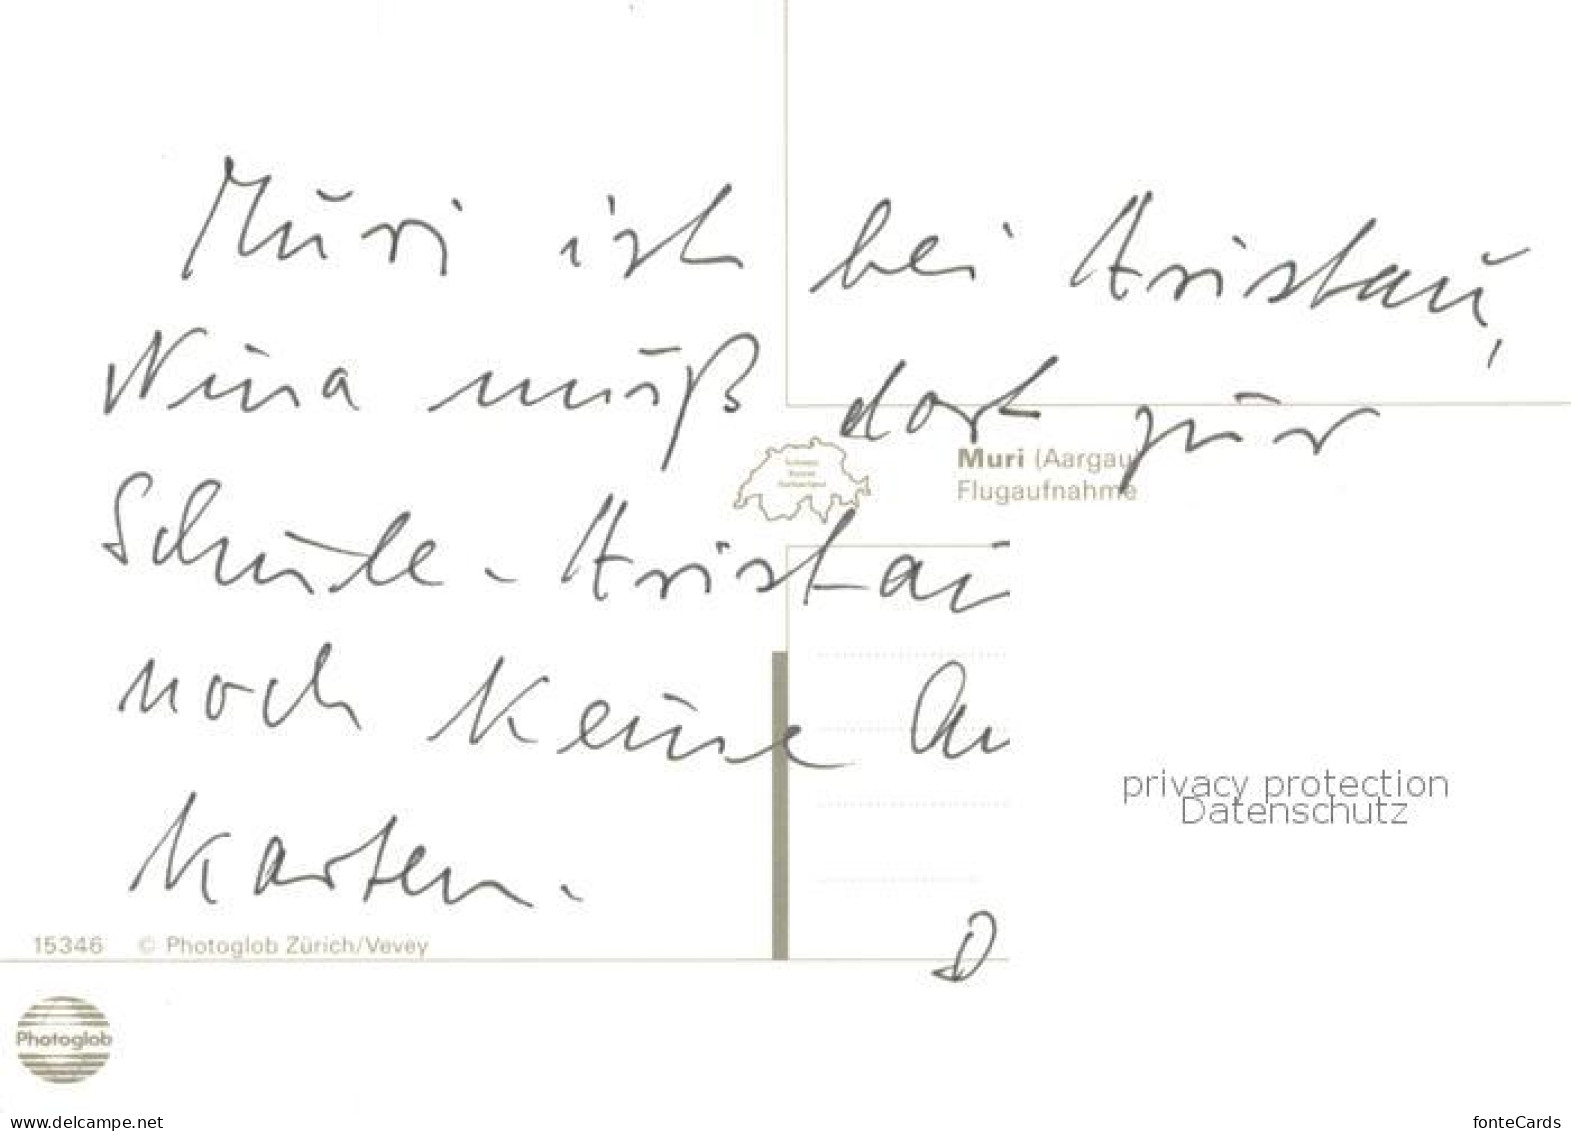 Muri ist bei Aristau,
Nina muß dort zur
Muri (Aargau)
Flugaufnahme
Schule - Aristau
noch keine
Karten.
D
15346 © Photoglob Zürich/Vevey
Photoglob
privacy protection
Datenschutz
www.delcampe.net
fonteCards